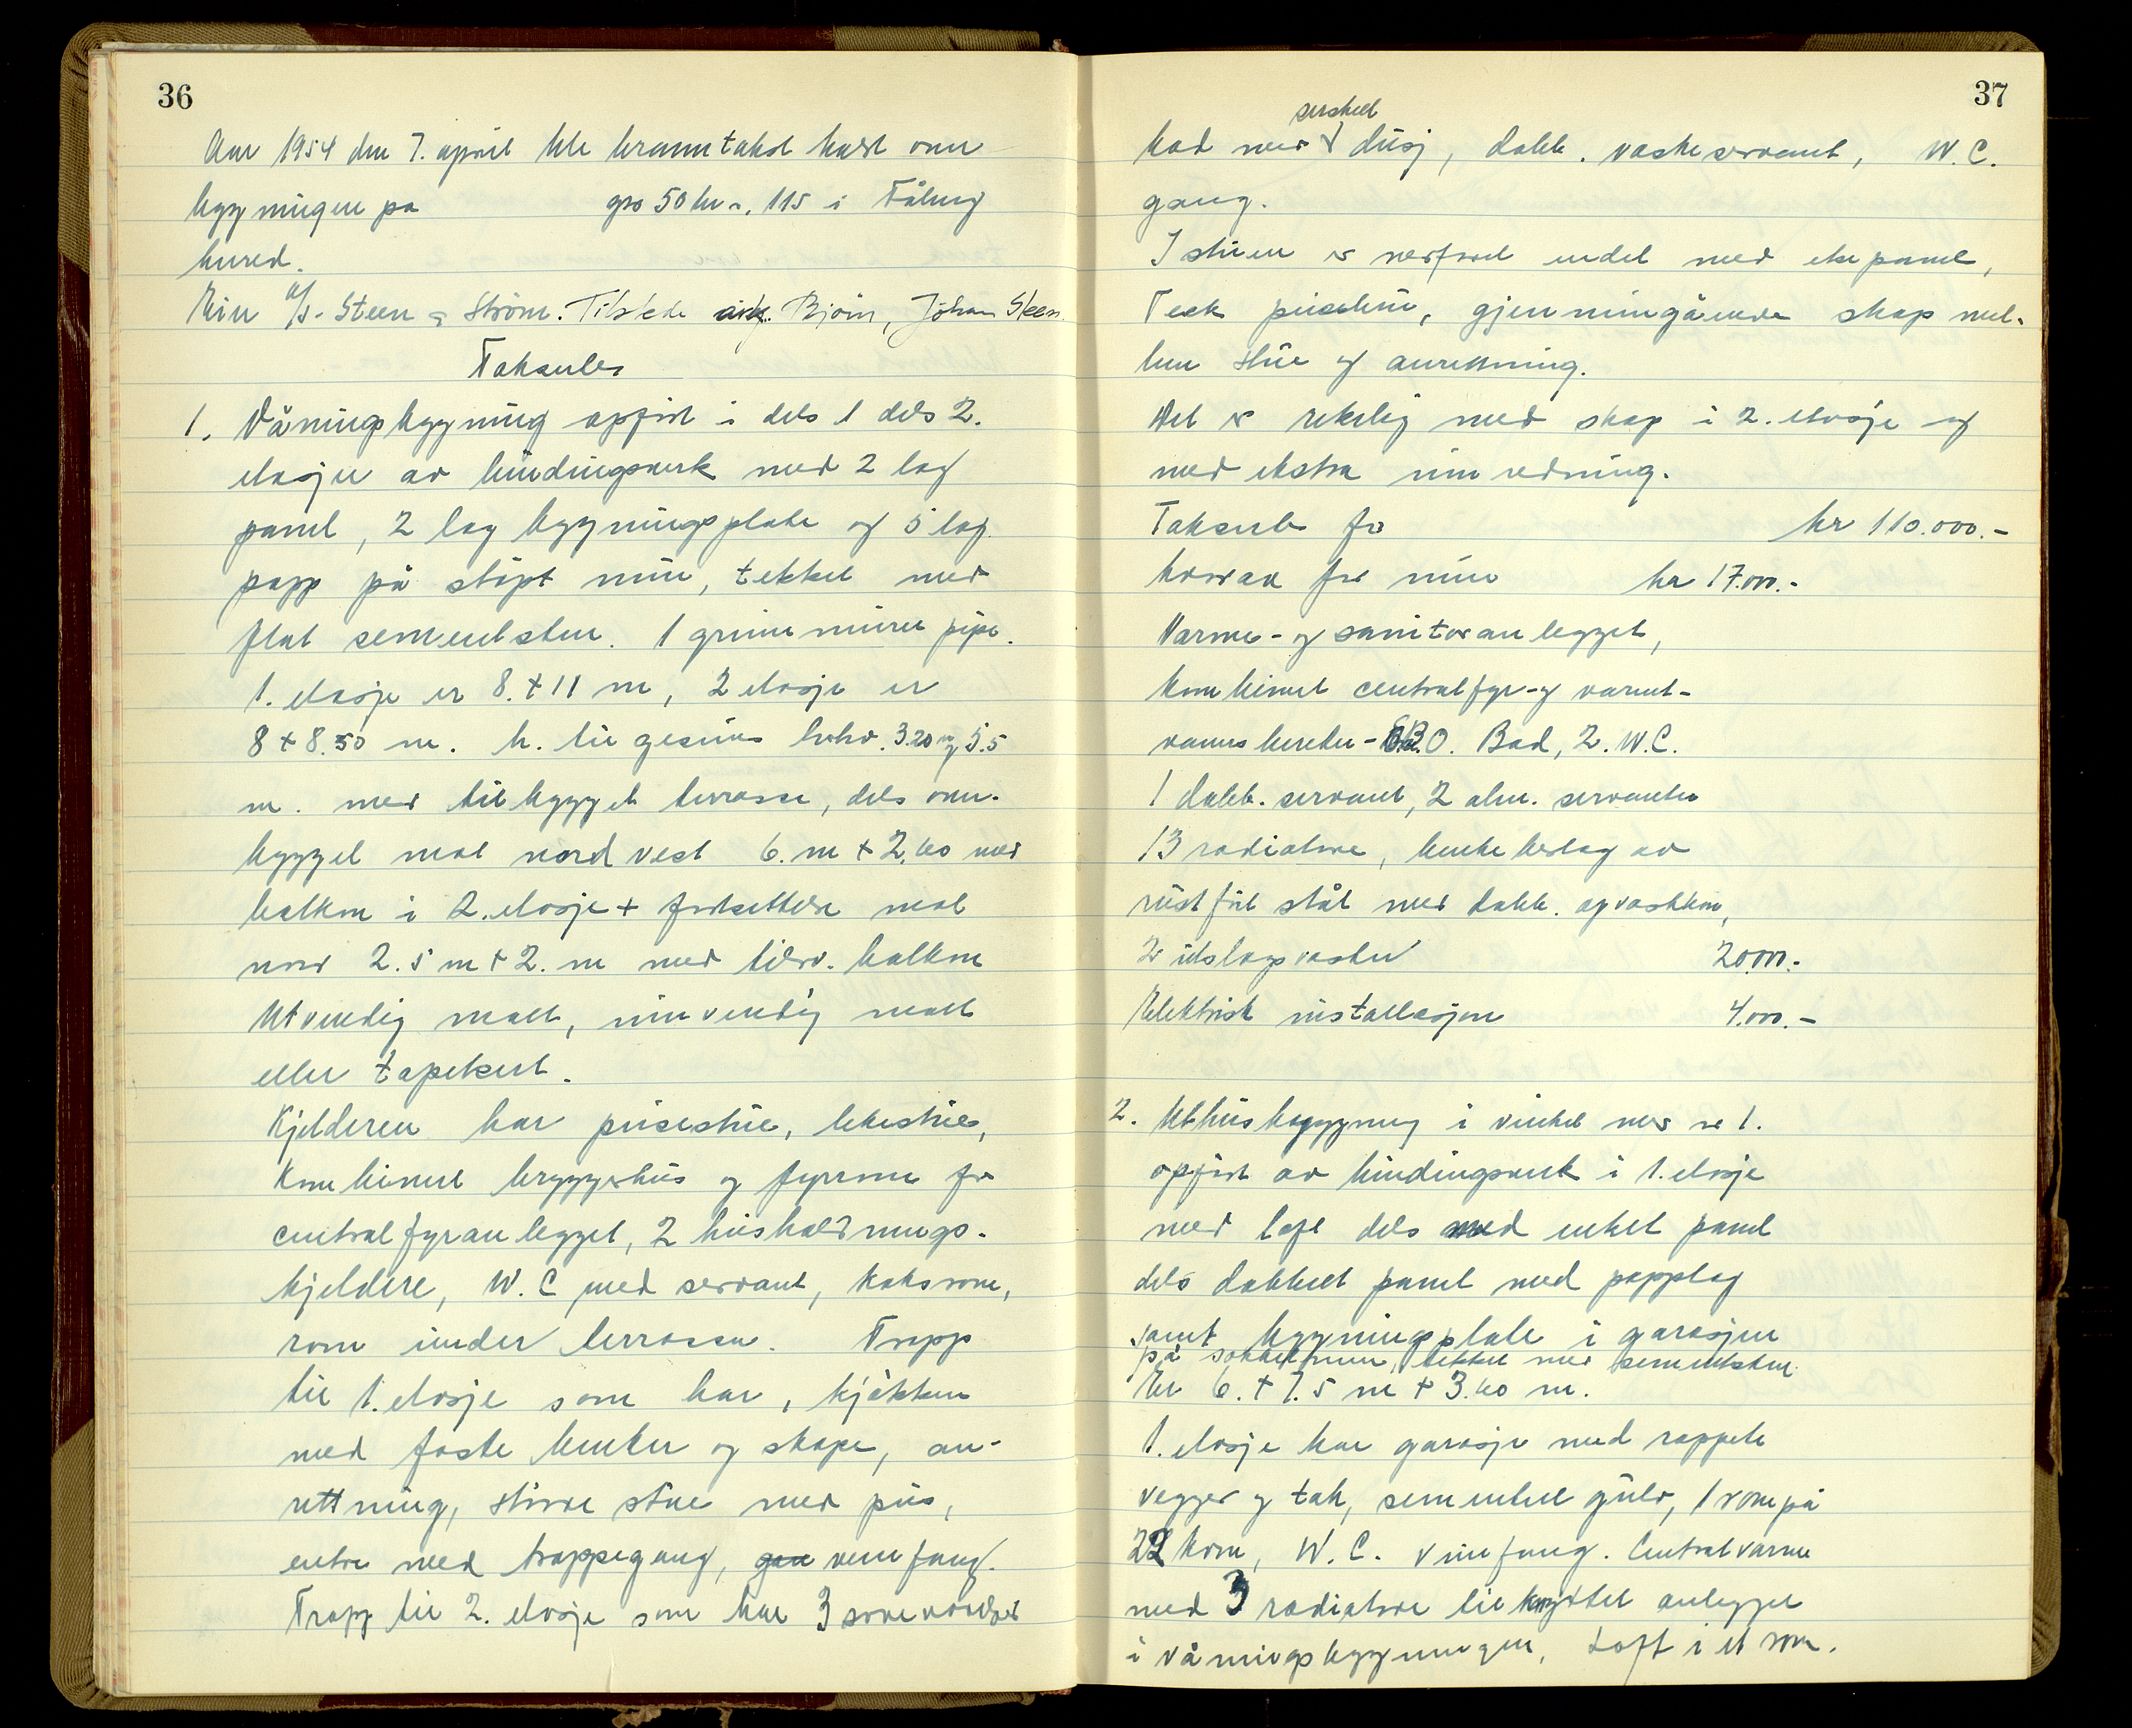 36
Aar 1954 den 7. april ble branntakst holdt over
bygningen på gno 50 br n. 115 i Fåberg
herred.
Eier A/S. Steen & Strøm. Tilstede ark. Bjørn, Johan Steen.
Takseres
1. Våningsbygning opført i dels 1 dels 2.
etasjer av bindingsverk med 2 lag
panel, 2 lag bygningsplate og 5 lag
papp på støpt mur, tekket med
flat sementsten. 1 grunnmuret pipe.
1. etasje er 8. + 11 m, 2 etasje er
8 + 8.50 m. h. til gesims hvhv. 3.20 og 5.5
m. med tilbygget terrasse, dels over-
bygget mot nord vest 6. m + 2.60 med
balkon i 2. etasje + fortsettelse mot
nord 2.5 m + 2. m med tilsv. balkon
Utvendig malt, innvendig malt
eller tapetsert.
Kjelderen har peisestue, lekestue,
Kombinert bryggerhus og fyrrom for
centralfyranlegget, 2 husholdnings-
kjeldere, W.C med servant, koksrom,
rom under terrassen. Trapp
til 1. etasje som har, kjøkken
med faste benker og skape, an-
rettning, større stue med peis,
entre med trappegang, vinnfang.
Trapp til 2. etasje som har 3 soveværelser
37
serskilt
bad med dusj, dobb. vaskeservant, W.C.
gang.
I stuen er nedforet endel med eke panel,
Teek peisebenk, gjennomgående skap mel-
lem stue og anrettning.
Det er rikelig med skap i 2. etasje og
med ekstra innredning.
Takseres for kr 110.000.-
hvorav for mur kr 17.000.-
Varme- og sanitæranlegget,
kombinert centralfyr- og varmt-
vannsbereder - C.B.O. Bad, 2. W.C.
1 dobb. servant, 2 alm. servanter
13 radiatore, benkebeslag av
rustfrit stål med dobb. opvaskkum,
2 utslagsvasker 20.000.-
Elektrisk installasjon 4.000.-
2. Uthusbygning i vinkel med nr 1.
opført av bindingsverk i 1. etasje
med loft dels med enkel panel
dels dobbelt panel med papplag
samt bygningsplate i garasjen
på sokkelmur, tekket med sementsten.
Er 6. + 7.5 m + 3.60 m.
1. etasje har garasje med rappete
vegger og tak, sementert gulv, 1 rom på
22 kvm, W.C. vinnfang. Centralvarme
med 3 radiatore tilknyttet anlegget
i våningsbygningen, Loft i et rom.